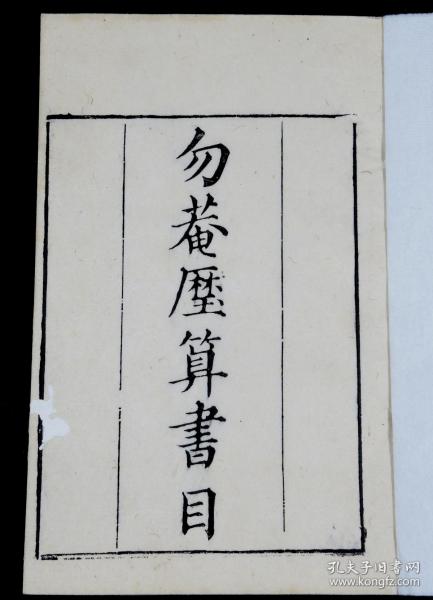 勿菴歴算書目
孔夫子旧书网
www.kongfz.com